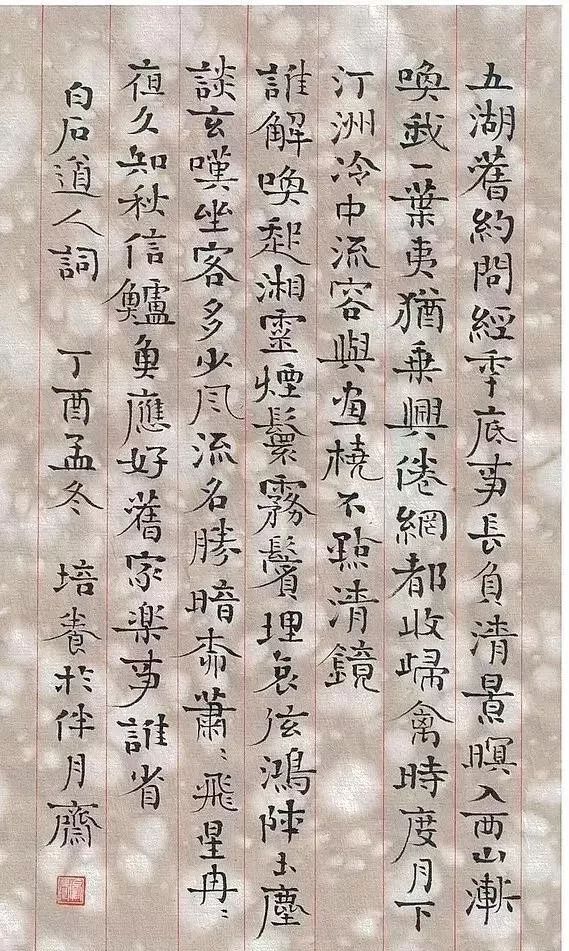 五湖舊約問經年底事長負清景暝入西山漸
喚我一葉夷猶乘興倦網都收歸禽時度月下
汀洲冷中流容與畫橈不點清鏡
誰解喚起湘靈煙鬟霧鬢理哀弦鴻陣玉麈
談玄嘆坐客多少風流名勝暗柳蕭〻飛星冉〻
夜久知秋信鱸魚應好舊家樂事誰省
白石道人詞 丁酉孟冬 培養於伴月齋